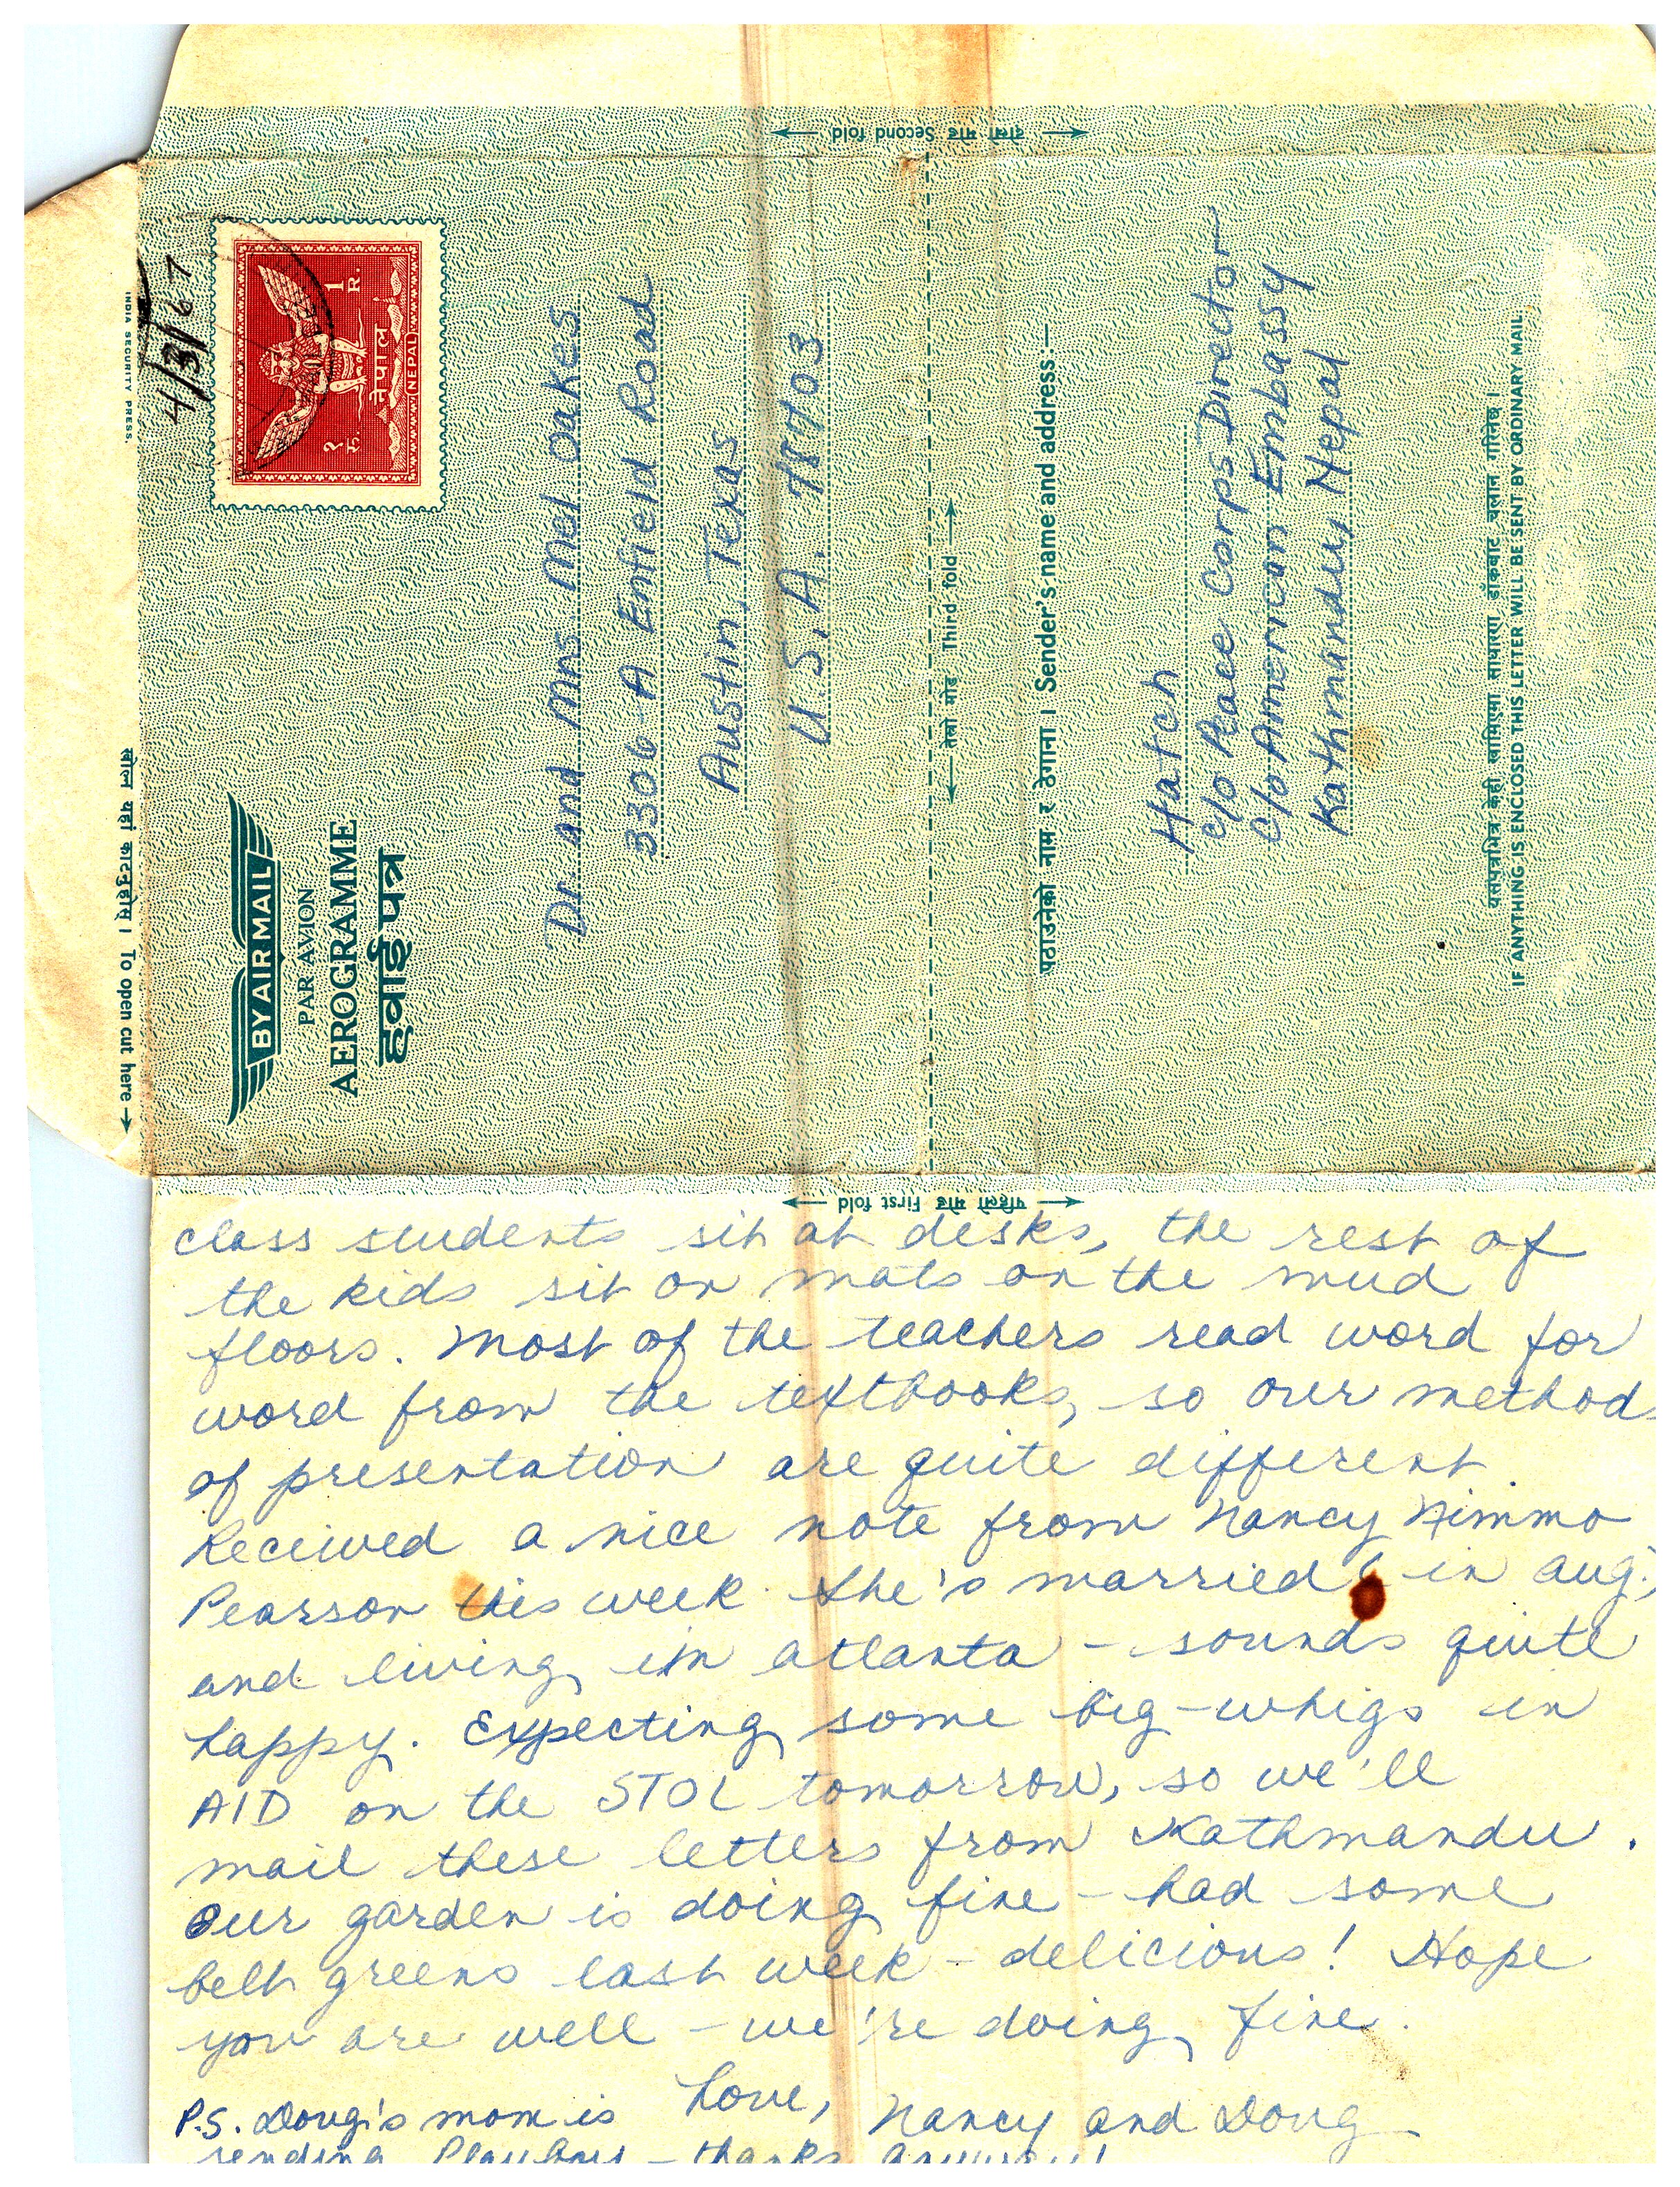 दोस्रो मोड Second fold
INDIA SECURITY PRESS.
4/3/67
१ रु.
नेपाल
NEPAL
1 R.
खोल्न यहां काट्नुहोस् । To open cut here →
BY AIR MAIL
PAR AVION
AEROGRAMME
हवाई पत्र
Dr. and Mrs Mel Oakes
3306-A Enfield Road
Austin, Texas
U.S.A. 78703
तेस्रो मोड Third fold
पठाउनेको नाम र ठेगाना । Sender's name and address:—
Hatch
c/o Peace Corps Director
c/o American Embassy
Kathmandu, Nepal
यसपत्रभित्र केही हालिएमा साधारण डाँकबाट चलान गरिनेछ ।
IF ANYTHING IS ENCLOSED THIS LETTER WILL BE SENT BY ORDINARY MAIL
पहिलो मोड First fold
class students sit at desks, the rest of
the kids sit on mats on the mud
floors. Most of the teachers read word for
word from the textbooks, so our methods
of presentation are quite different.
Received a nice note from Nancy Nimmo
Pearson this week. She's married in Aug.,
and living in Atlanta – sounds quite
happy. Expecting some big-whigs in
AID on the STOL tomorrow, so we'll
mail these letters from Kathmandu.
Our garden is doing fine – had some
belt greens last week – delicious! Hope
you are well – we're doing fine.
Love,
Nancy and Doug
P.S. Doug's mom is
sending Playboy – thanks anyway!